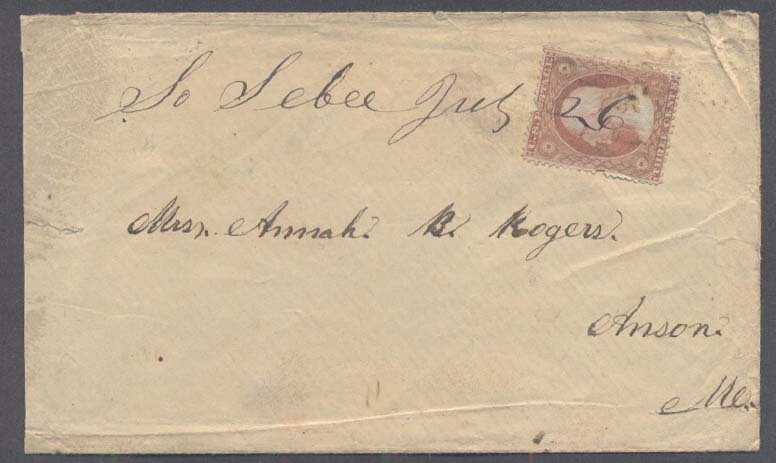 So Sebec July 26
Mrs. Annah. B. Rogers.
Anson.
Me.